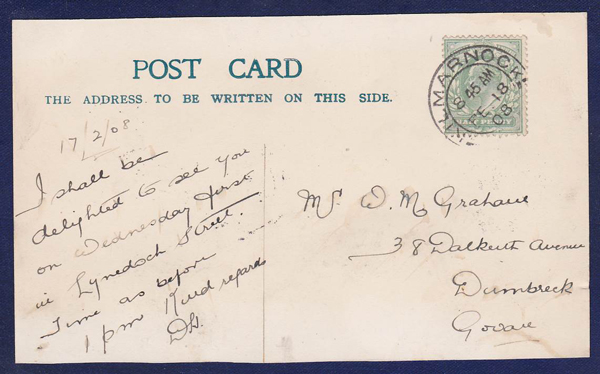 POST CARD
THE ADDRESS TO BE WRITTEN ON THIS SIDE.
17/2/08
I shall be
delighted to see you
on Wednesday first
in Lynedoch Street.
Time as before
1 pm Kind regards
DG.
Mr. W. M. Graham
38 Dalkeith Avenue
Dumbreck
Govan
KILMARNOCK
8 55 AM
FE 18
08
HALFPENNY